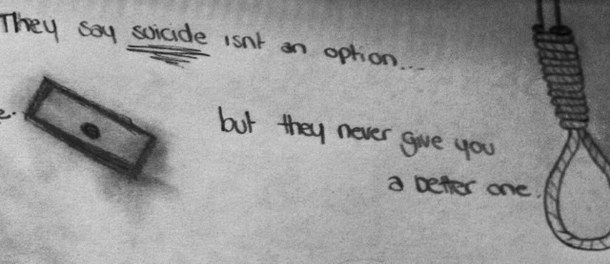 They say suicide isnt an option...
e.
but they never give you
a better one.